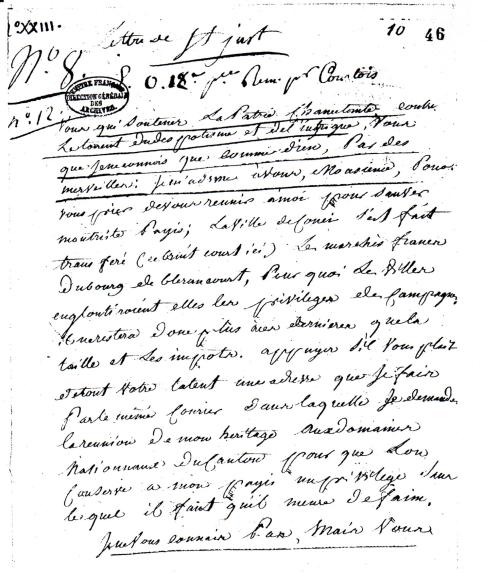 Lo XXIII.
10 46
Lettre de St just
No 8. 8. O. 12a pce Rem. pr Courtois
CHAMBRE FRANÇAISE
DIRECTION GÉNÉRALE
DES
ARCHIVES
no. 12.
Vous qui Soutenez La Patrie Chancelante contre
Le torrent du despotisme et del'intrigue, Vous
que Jeneconnois que Comme dieu, Par des
merveilles; Jem'adresse avous, Monsieur, Pour
vous prier devous reunir amoi pour Sauver
montriste Payis; La ville deCouci S'est fait
transferé (cebruit court ici) Les marchés francs
Dubourg de blerancourt, Pour quoi Les Villes
englontiroient elles les privileges des Campagnes
il nerestera donc plus aces dernieres quela
taille et Les impots. appuyez S'il Vous plait
detout Votre talent une adresse que Jefais
Par le même Courier Dans laquelle Je demande
la reunion de mon heritage auxdomaines
Nationnaux ducanton pour que Lon
Conserve a mon payis un privilege Sans
le quel il faut qu'il meure defaim.
Je neVous connais Pas, Mais Vous